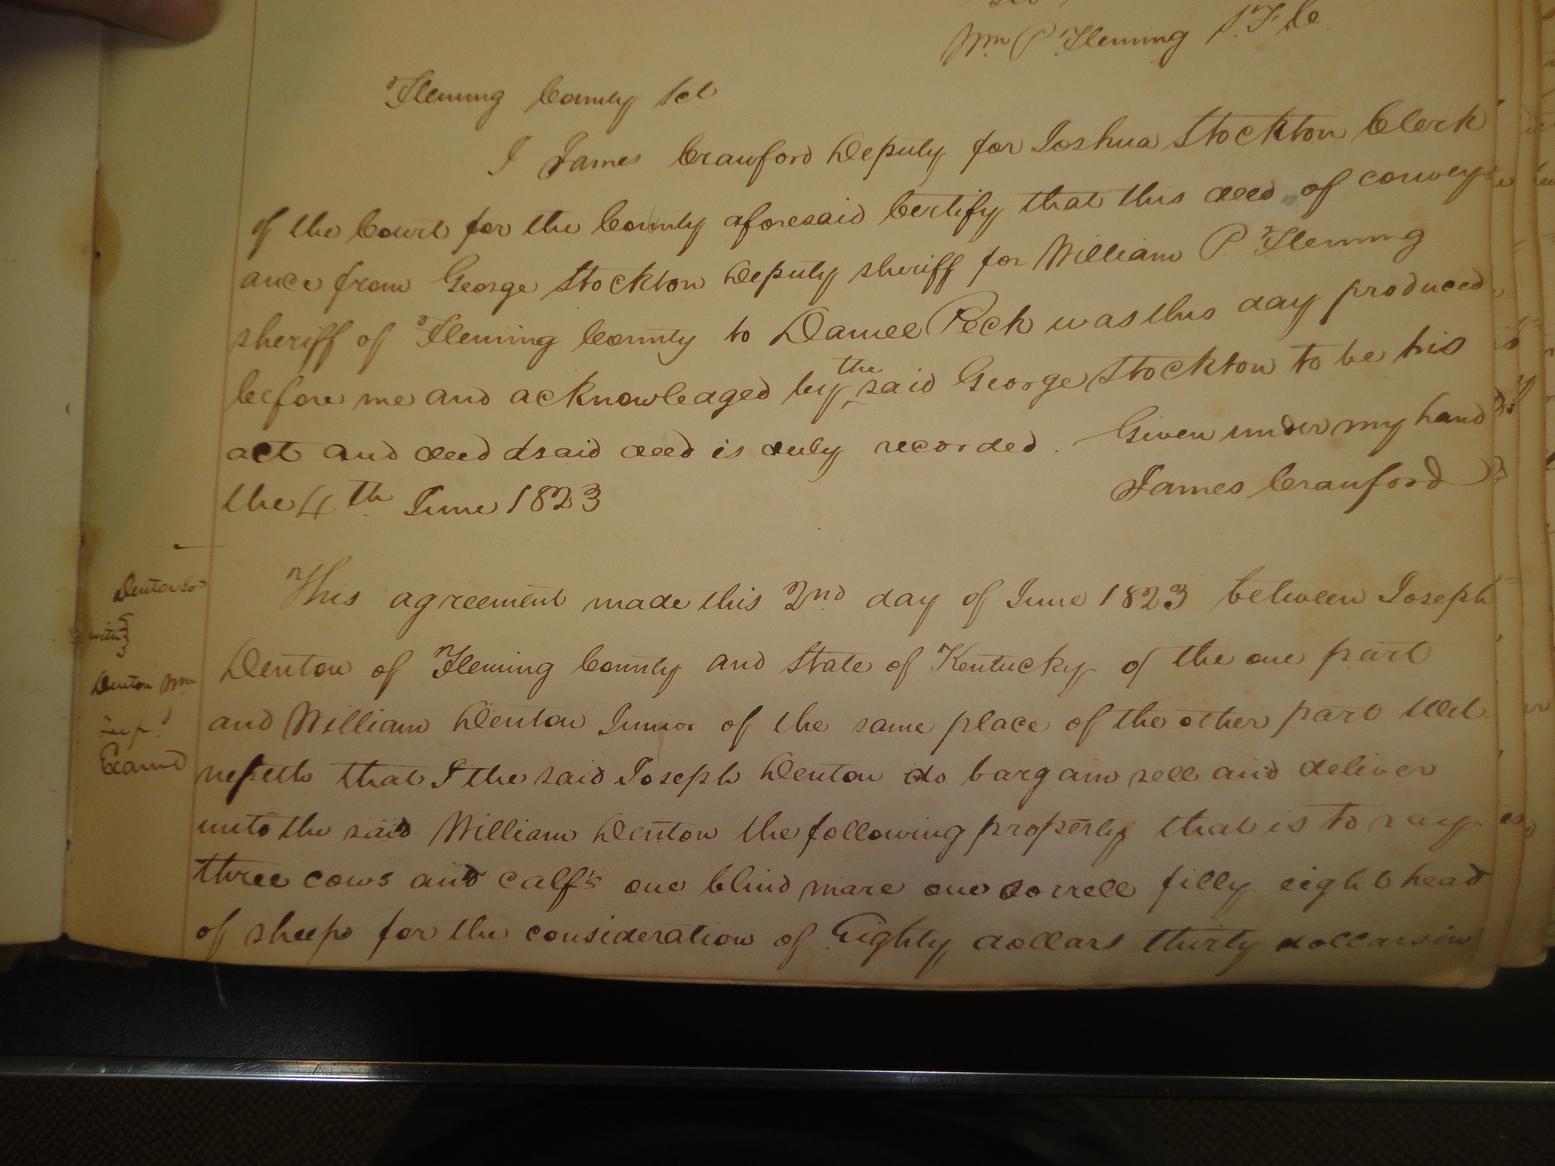 Wm P Fleming S.F.C
Fleming County Sct
I James Crawford Deputy for Joshua Stockton Clerk
of the Court for the County aforesaid Certify that this deed of convey-
ance from George Stockton Deputy sheriff for William P. Fleming
sheriff of Fleming County to Daniel Peck was this day produced
before me and acknowledged by the said George Stockton to be his
act and deed & said deed is duly recorded. Given under my hand
the 4th June 1823
James Crawford
Denton Jo
with
Denton Wm
Exam'd
This agreement made this 2nd day of June 1823 between Joseph
Denton of Fleming County and State of Kentucky of the one part
and William Denton Junior of the same place of the other part Wit
nesseth that I the said Joseph Denton do bargain sell and deliver
unto the said William Denton the following property that is to say
three cows and calf's one blind mare one sorrell filly eight head
of sheep for the consideration of Eighty dollars thirty dollars in